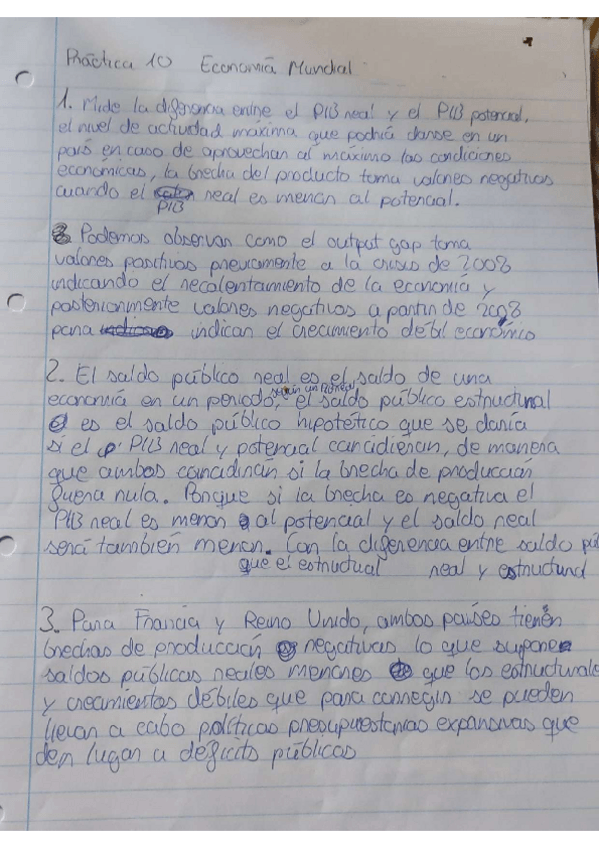 Práctica 10 Economía Mundial
1. Mide la diferencia entre el PIB real y el PIB potencial,
el nivel de actividad máxima que podría darse en un
país en caso de aprovechar al máximo las condiciones
económicas, la brecha del producto toma valores negativos
cuando el PIB real es menor al potencial.
Podemos observar como el output gap toma
valores positivos previamente a la crisis de 2008
indicando el recalentamiento de la economía y
posteriormente valores negativos a partir de 2008
para indicar el crecimiento débil económio
2. El saldo público real es el saldo de una
economía en un periodo, según un PIB real, el saldo público estructural
es el saldo público hipotético que se daría
si el PIB real y potencial coincidieran, de manera
que ambos coincidirán si la brecha de producción
fuera nula. Porque si la brecha es negativa el
PIB real es menor al potencial y el saldo real
será también menor. Con la diferencia entre saldo púb
que el estructual real y estructural
3. Para Francia y Reino Unido, ambos países tienen
brechas de producción negativas lo que supone
saldos públicos reales menores que los estructurales
y crecimientos débiles que para corregir se pueden
llevar a cabo políticas presupuestarias expansivas que
den lugar a déficits públicos